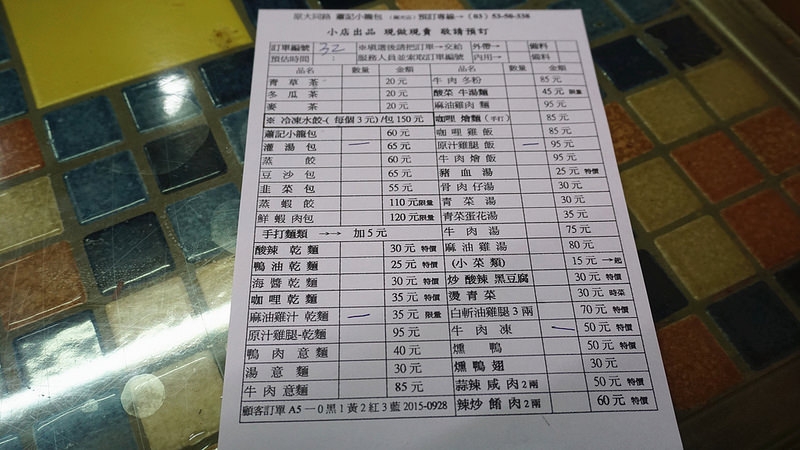 原大同路 蕭記小籠包 預訂專線→ (03) 53-50-338
小店出品 現做現賣 敬請預訂
訂單編號 32 ※填選後請把訂單→交給 外帶→ 備料
預估時間 : 服務人員並索取訂單編號 內用→ 備料
品名 數量 金額 品名 數量 金額
青草茶 20元 牛肉冬粉 85元
冬瓜茶 20元 酸菜牛湯麵 45元 限量
麥茶 20元 麻油雞肉麵 95元
※ 冷凍水餃-( 每個3元)/包150元 咖哩 燴麵(手打) 85元
蕭記小籠包 60元 咖哩雞飯 85元
灌湯包 一 65元 原汁雞腿飯 一 95元
蒸餃 60元 牛肉燴飯 95元
豆沙包 65元 豬血湯 25元 特價
韭菜包 55元 骨肉仔湯 30元
蒸蝦餃 110元限量 青菜湯 30元
鮮蝦肉包 120元限量 青菜蛋花湯 35元
手打麵類 →→→ 加5元 牛肉湯 75元
酸辣 乾麵 30元 特價 麻油雞湯 80元
鴨油乾麵 25元 特價 (小菜類) 15元→起
海醬乾麵 30元 特價 炒酸辣黑豆腐 30元 特價
咖哩乾麵 35元 特價 燙青菜 30元 時菜
麻油雞汁 乾麵 一 35元 限量 白斬油雞腿3兩 70元 特價
原汁雞腿-乾麵 95元 牛肉凍 一 50元 特價
鴨肉意麵 40元 燻鴨 50元 特價
湯意麵 30元 燻鴨翅 30元
牛肉意麵 85元 蒜辣咸肉2兩 50元 特價
顧客訂單 A5—0黑1黃2紅3藍2015-0928 辣炒餚肉2兩 60元 特價